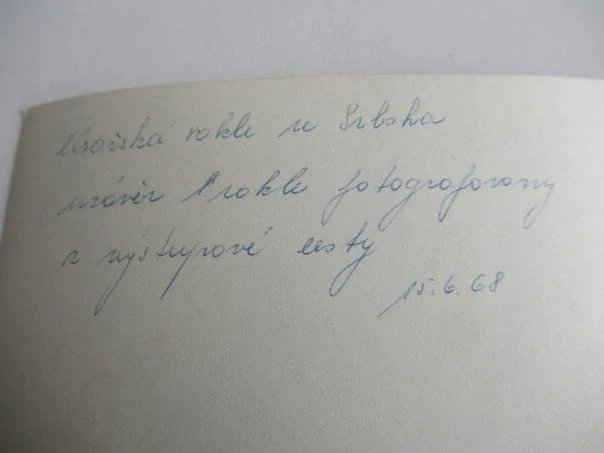 Císařská rokle u Srbska
uzávěr rokle fotografovaný
z výstupové cesty
15.6.68